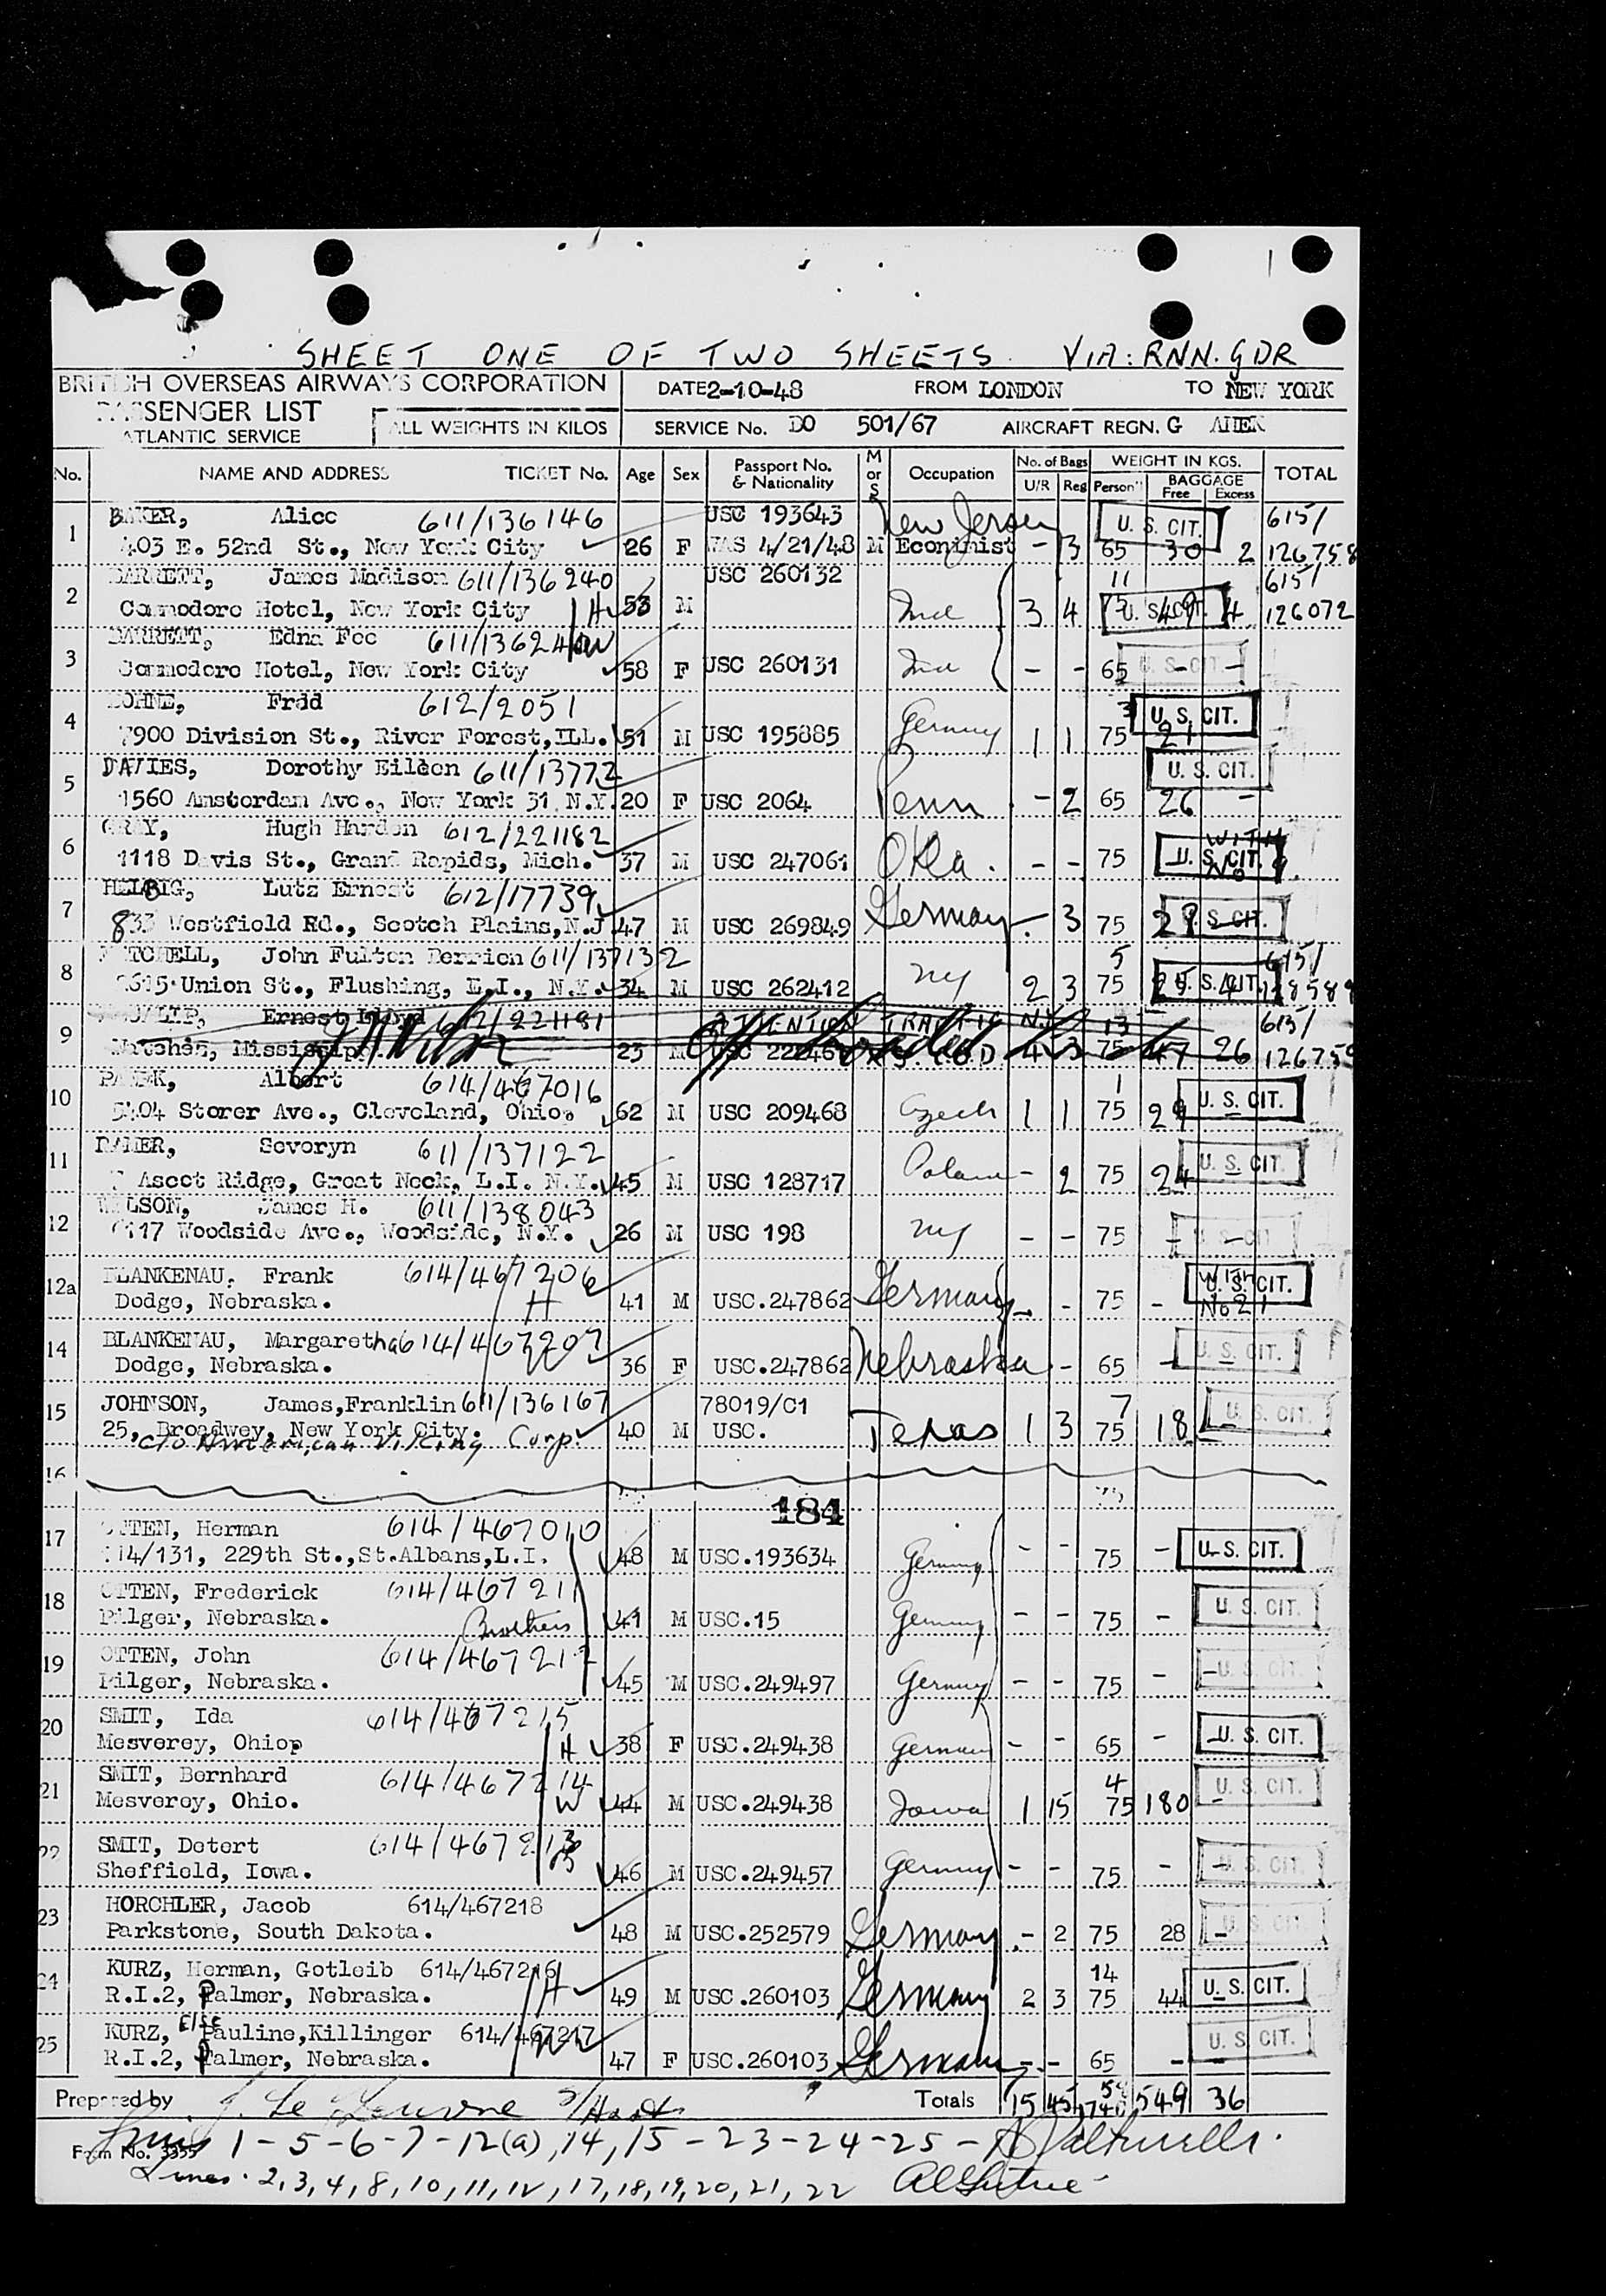 SHEET ONE OF TWO SHEETS. VIA: RNN. GDR
BRITISH OVERSEAS AIRWAYS CORPORATION
PASSENGER LIST
ATLANTIC SERVICE
ALL WEIGHTS IN KILOS
DATE 2-10-48 FROM LONDON TO NEW YORK
SERVICE No. DO 501/67 AIRCRAFT REGN. G AHEK
No. NAME AND ADDRESS TICKET No. Age Sex Passport No. & Nationality M or S Occupation No. of Bags U/R Reg WEIGHT IN KGS. Person'l BAGGAGE Free Excess TOTAL
1 BAKER, Alice 611/136146 USC 193643 New Jersey U. S. CIT. 615/
403 E. 52nd St., New York City 26 F WAS 4/21/48 M Econimist - 3 65 30 2 126758
2 BARRETT, James Madison 611/136240 USC 260132 11 615/
Commodore Hotel, New York City H 53 M Ind 3 4 75 U. S. CIT. 49 4 126072
3 BARRETT, Edna Fee 611/136241 W
Commodore Hotel, New York City 58 F USC 260131 Ind - - 65 U. S. CIT. - -
4 BOHNE, Frdd 612/2051 3 U. S. CIT.
7900 Division St., River Forest, ILL. 51 M USC 195885 Germny 1 1 75 21
5 DAVIES, Dorothy Eileen 611/13772 U. S. CIT.
1560 Amsterdam Ave., New York 31, N.Y. 20 F USC 2064 Penn - 2 65 26 -
6 GRAY, Hugh Harden 612/221182 WITH
1118 Davis St., Grand Rapids, Mich. 37 M USC 247061 Okla. - - 75 U. S. CIT. No 9.
7 HELBIG, Lutz Ernest 612/17739
833 Westfield Rd., Scotch Plains, N.J. 47 M USC 269849 Germany - 3 75 29 U. S. CIT.
8 MITCHELL, John Fulton Derrien 611/137132 5 615/
3615 Union St., Flushing, L.I., N.Y. 34 M USC 262412 NY 2 3 75 25 U. S. CIT. 4
9 Ernest Lloyd 612/221181 ATTENTION TRAFFIC N.Y. 13 615/
Natchez, Mississippi 23 M USC Off loaded 4 3 75 47 26 126759
10 Albert 614/467016 1
5404 Storer Ave., Cleveland, Ohio. 62 M USC 209468 Czech 1 1 75 29 U. S. CIT.
11 RAMER, Severyn 611/137122
Ascot Ridge, Great Neck, L.I. N.Y. 45 M USC 128717 Polan - 2 75 24 U. S. CIT.
12 WILSON, James H. 611/138043
6117 Woodside Ave., Woodside, N.Y. 26 M USC 198 NY - - 75 - U. S. CIT.
12a BLANKENAU, Frank 614/467206 With
Dodge, Nebraska. H 41 M USC.247862 Germany - - 75 - U. S. CIT. No 21
14 BLANKENAU, Margaretha 614/467207
Dodge, Nebraska. W 36 F USC.247862 Nebraska - 65 - U. S. CIT.
15 JOHNSON, James, Franklin 611/136167 78019/C1 7
25, Broadwey, New York City. 40 M USC. Texas 1 3 75 18 - U. S. CIT.
c/o American Viscing Corp.
16
184
17 OTTEN, Herman 614/467010
114/131, 229th St., St.Albans, L.I. 48 M USC.193634 Germny - - 75 - U. S. CIT.
18 OTTEN, Frederick 614/467211
Pilger, Nebraska. Brothers 41 M USC.15 Germny - - 75 - U. S. CIT.
19 OTTEN, John 614/467212
Pilger, Nebraska. 45 M USC.249497 Germny - - 75 - U. S. CIT.
20 SMIT, Ida 614/467215
Mesverey, Ohiop H 38 F USC.249438 German - - 65 - U. S. CIT.
21 SMIT, Bernhard 614/467214 4
Mesverey, Ohio. W 44 M USC.249438 Iowa 1 15 75 180 - U. S. CIT.
22 SMIT, Detert 614/467213
Sheffield, Iowa. B 46 M USC.249457 Germny - - 75 - U. S. CIT.
23 HORCHLER, Jacob 614/467218
Parkstone, South Dakota. 48 M USC.252579 Germany - 2 75 28 - U. S. CIT.
24 KURZ, Herman, Gotleib 614/467216 14
R.I.2, Palmer, Nebraska. H 49 M USC.260103 Germany 2 3 75 44 U. S. CIT.
25 KURZ, Else Pauline, Killinger 614/467217
R.I.2, Palmer, Nebraska. W 47 F USC.260103 Germany - - 65 - - U. S. CIT.
Prepared by Totals 15 45 1740 549 36
Lines 1-5-6-7-12(a), 14, 15-23-24-25-
Form No. 3355
Lines. 2, 3, 4, 8, 10, 11, 12, 17, 18, 19, 20, 21, 22